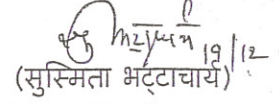 19/12
(सुस्मिता भट्टाचार्य)